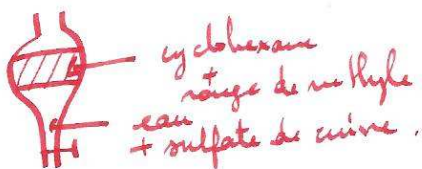 cyclohexane
+
rouge de méthyle
eau
+ sulfate de cuivre.